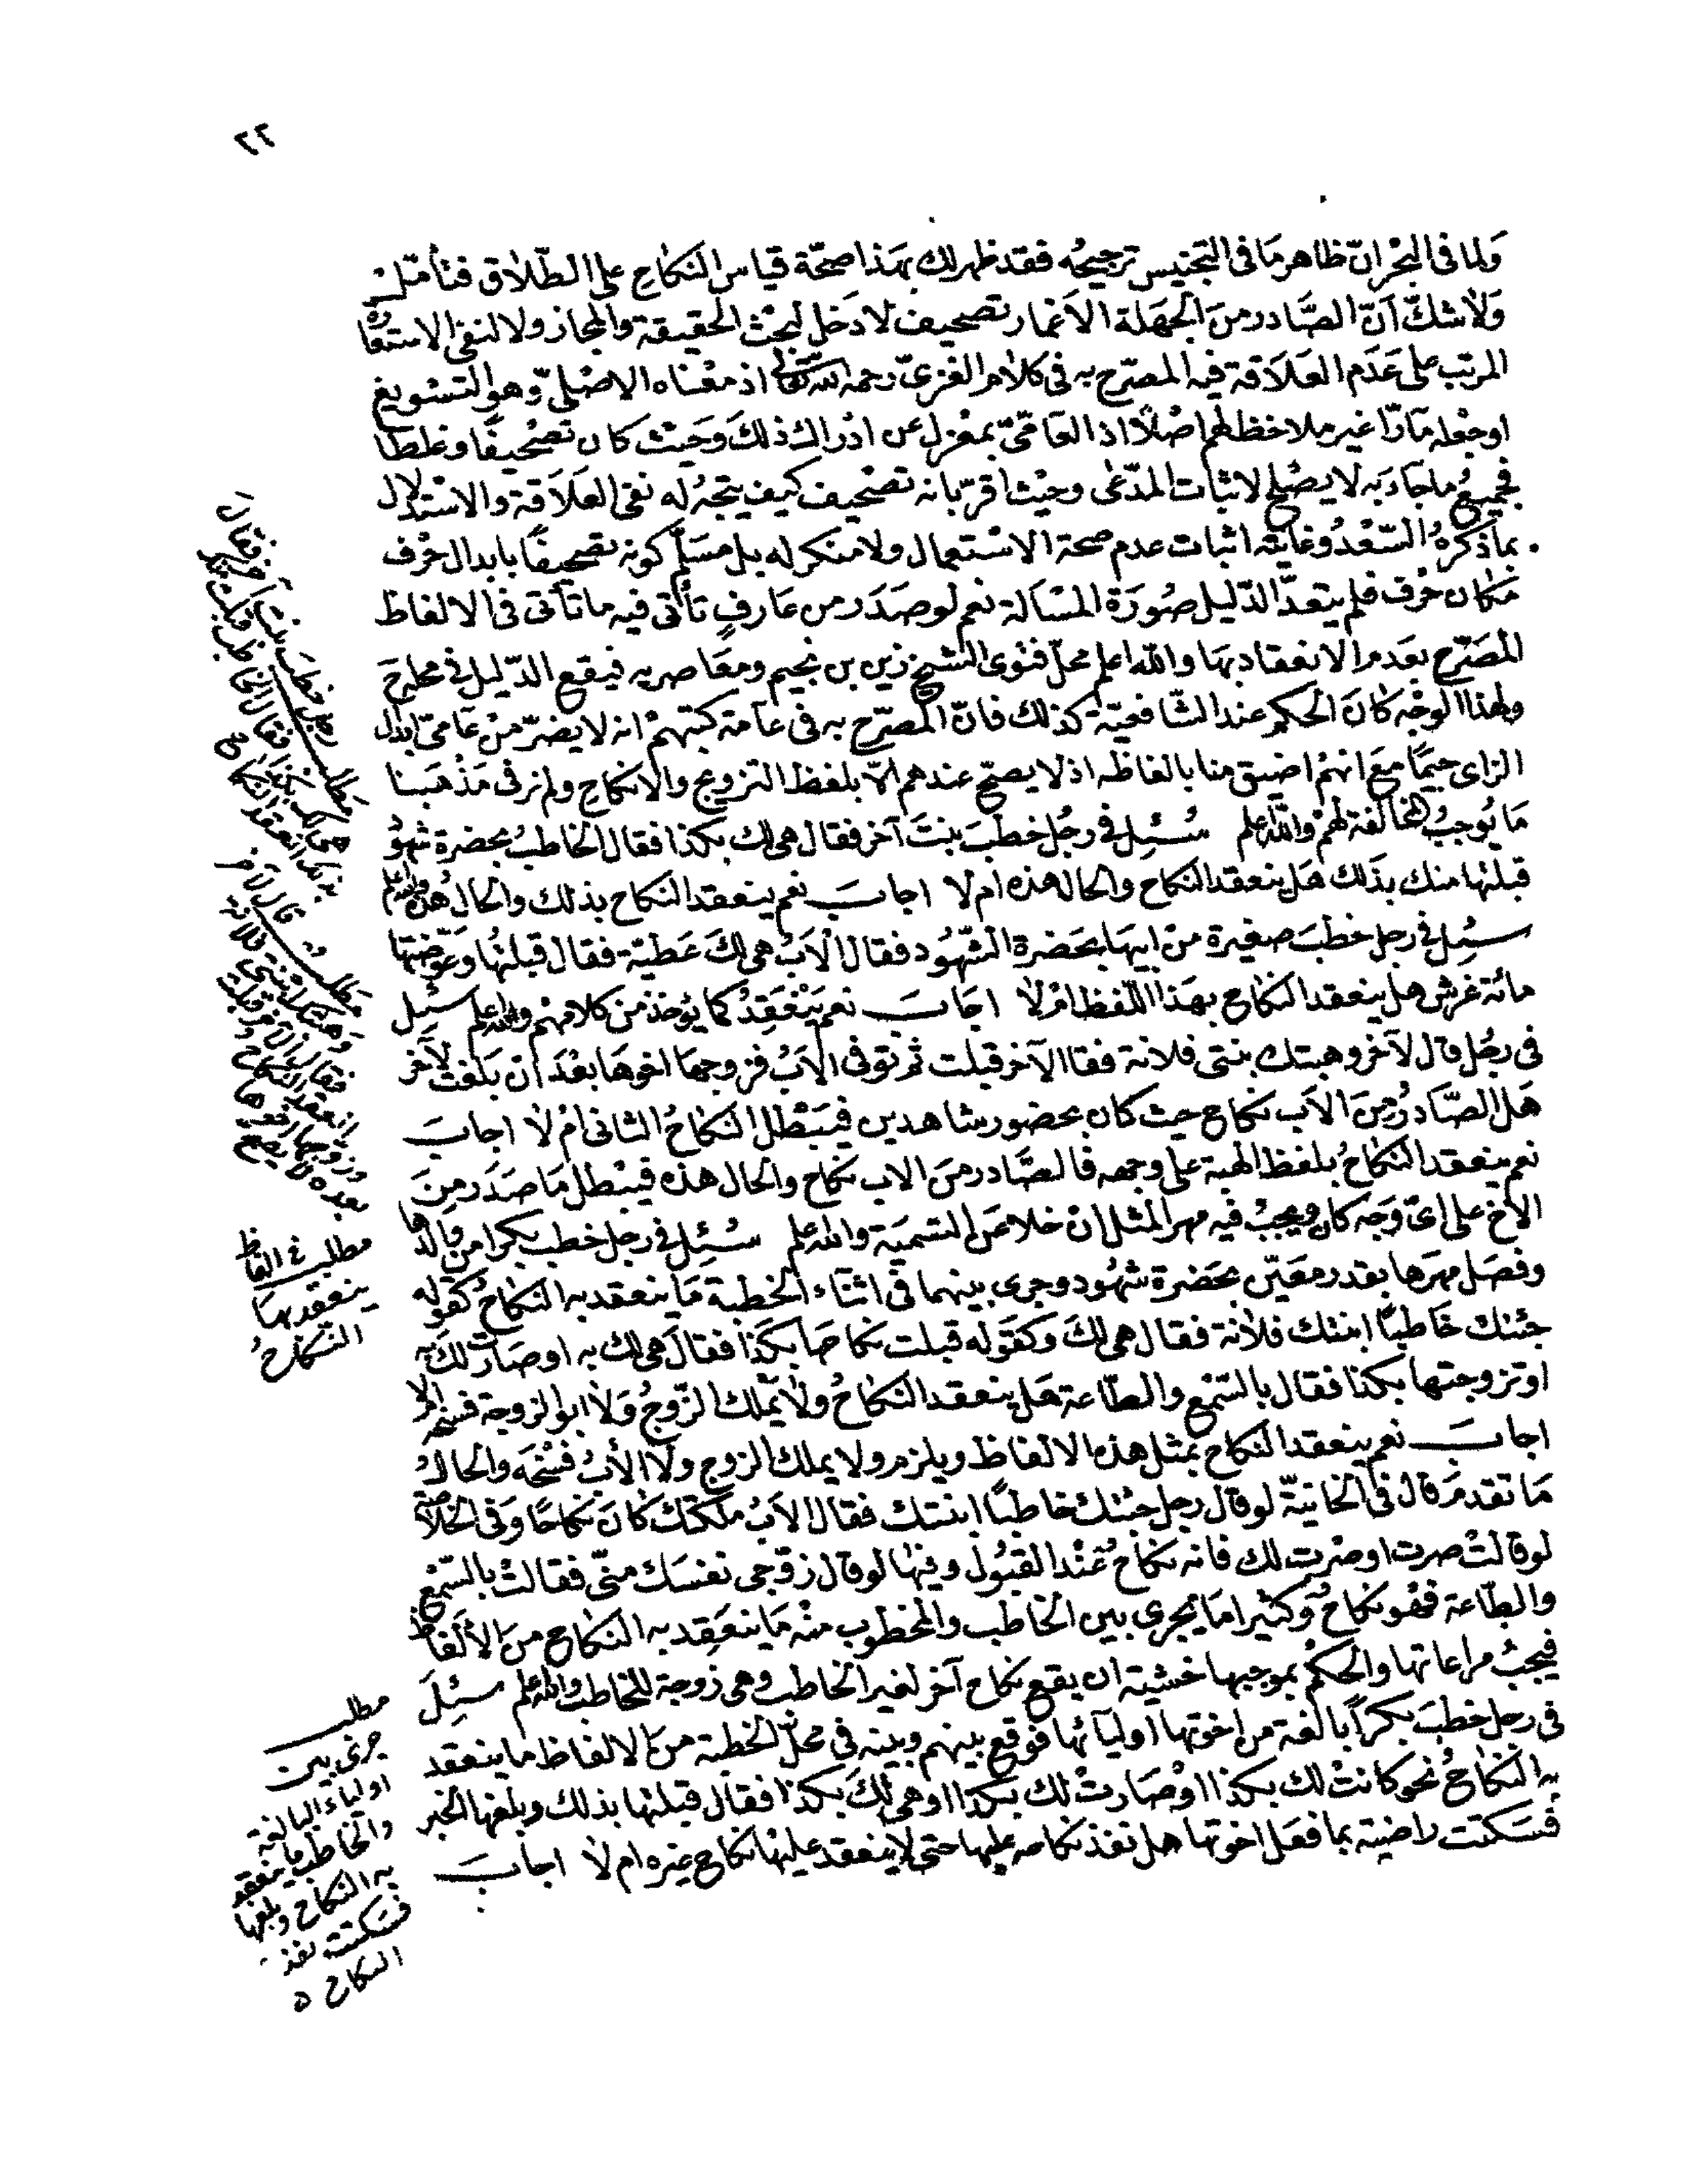 ٢٢
ولما فى البحر ان ظاهر ما فى التجنيس ترجيحه فقد ظهر لك بهذا صحة قياس النكاح على الطلاق فتأمل
ولا شك ان الصادر من الجهلة الاغمار تصحيف لا دخل لبحث الحقيقة والمجاز ولا لنفى الاستعارة
المرتب على عدم العلاقة فيه المصرح به فى كلام الغزى رحمه الله تعالى اذ معناه الاصلى وهو التسويغ
او جعله مارا غير ملاحظ لهم اصلا اذ العامى بمعزل عن ادراك ذلك وحيث كان تصحيفا وغلطا
فجميع ما جاء به لا يصلح لاثبات المدعى وحيث اقر بانه تصحيف كيف يتجه له نفى العلاقة والاستدلال
بما ذكره السعد وغايته اثبات عدم صحة الاستعمال ولا منكر له بل مسلم كونه تصحيفا بابدال حرف
مكان حرف فلم يتعد الدليل صورة المسألة نعم لو صدر من عارف تأتى فيه ما تأتى فى الالفاظ
المصرح بعدم الانعقاد بها والله اعلم محل فتوى الشيخ زين بن نجيم ومعاصريه فيقع الدليل فى محله ح
ولهذا الوجه كان الحكم عند الشافعية كذلك فان المصرح به فى عامة كتبهم انه لا يضر من عامى ابدال
الزاى جيما مع انهم اضيق منا بالفاظه اذ لا يصح عندهم الا بلفظ التزويج والانكاح ولم نر فى مذهبنا
ما يوجب المخالفة لهم والله اعلم سئل فى رجل خطب بنت آخر فقال هى لك بكذا فقال الخاطب بحضرة شهود
قبلتها منك بذلك هل ينعقد النكاح والحال هذه ام لا اجاب نعم ينعقد النكاح بذلك والحال هذه والله اعلم
سئل فى رجل خطب صغيرة من ابيها بحضرة الشهود فقال الاب هى لك عطية فقال قبلتها وعوضتها
مائة غرش هل ينعقد النكاح بهذا اللفظ ام لا اجاب نعم ينعقد كما يؤخذ من كلامهم والله اعلم سئل
فى رجل قال لآخر وهبتك بنتى فلانة فقا الآخر قبلت ثم توفى الاب فزوجها اخوها بعد ان بلغت لآخر
هل الصادر من الاب نكاح حيث كان بحضور شاهدين فيبطل النكاح الثانى ام لا اجاب
نعم ينعقد النكاح بلفظ الهبة على وجهه فالصادر من الاب نكاح والحال هذه فيبطل ما صدر من
الاخ على اى وجه كان ويجب فيه مهر المثل ان خلا عن التسمية والله اعلم سئل فى رجل خطب بكرا من والدها
وفصل مهرها بقدر معين بحضرة شهود وجرى بينهما فى اثناء الخطبة ما ينعقد به النكاح كقوله
جئتك خاطبا ابنتك فلانة فقال هى لك وكقوله قبلت نكاحها بكذا فقال هى لك به او صارت لك به
او تزوجتها بكذا فقال بالسمع والطاعة هل ينعقد النكاح ولا يملك الزوج ولا ابو الزوجة فسخه ام لا
اجاب نعم ينعقد النكاح بمثل هذه الالفاظ ويلزم ولا يملك الزوج ولا الأب فسخه والحال
ما تقدم قال فى الخانية لو قال رجل جئتك خاطبا ابنتك فقال الاب ملكتك كان نكاحا وفى الخلاصة
لو قالت صرت او صرت لك فانه نكاح عند القبول وفيها لو قال زوجى نفسك منى فقالت بالسمع
والطاعة فهو نكاح وكثيرا ما يجرى بين الخاطب والمخطوب منه ما ينعقد به النكاح من الألفاظ
فيجب مراعاتها والحكم بموجبها خشية ان يقع نكاح آخر لغير الخاطب وهى زوجة للخاطب والله اعلم سئل
فى رجل خطب بكرا بالغة من اخوتها اوليائها فوقع بينهم وبينه فى محل الخطبة من الالفاظ ما ينعقد
به النكاح نحو كانت لك بكذا او صارت لك بكذا او هى لك بكذا فقال قبلتها بذلك وبلغها الخبر
فسكتت راضية بما فعل اخوتها هل نفذ نكاحه عليها حتى لا ينعقد عليها نكاح غيره ام لا اجاب
مطلب
رجل خطب بنت آخر فقال
هى لك بكذا فقال الخاطب قبلت
بذلك انعقد النكاح
مطلب قال لآخر
وهبتك بنتى فلانة
فقال الآخر قبلت
انعقد النكاح
وزوجها اخوها
بعده لا يصح
مطلب فى الفاظ
ينعقد بها
النكاح
مطلب
جرى بين
اولياء البالغة
والخاطب ما ينعقد
به النكاح وبلغها
فسكتت نفذ
النكاح ه